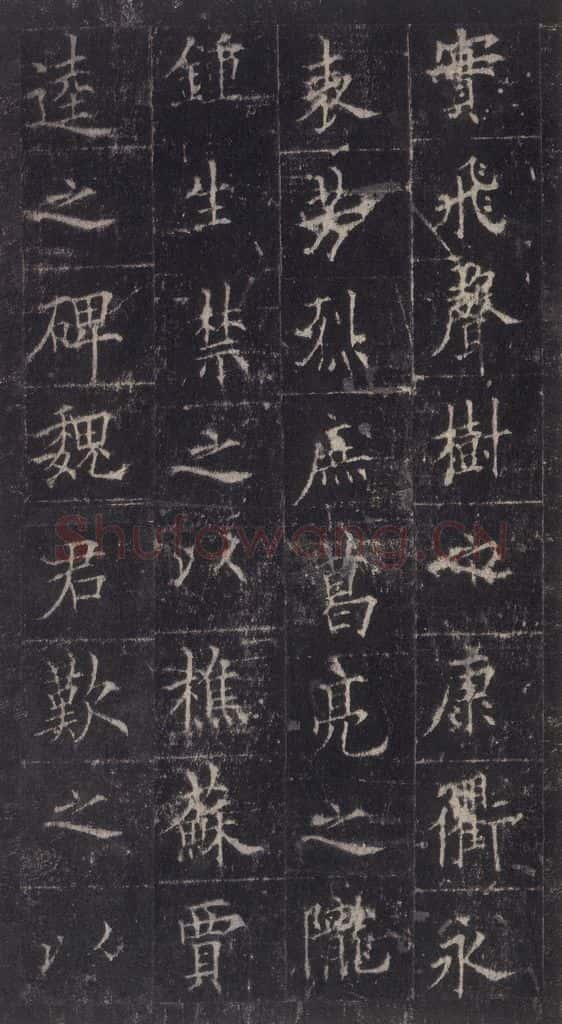 實飛聲樹之康衢永
表芳烈庶葛亮之隴
鍾生禁之以樵蘇賈
逵之碑魏君歎之以
Shufawang.CN